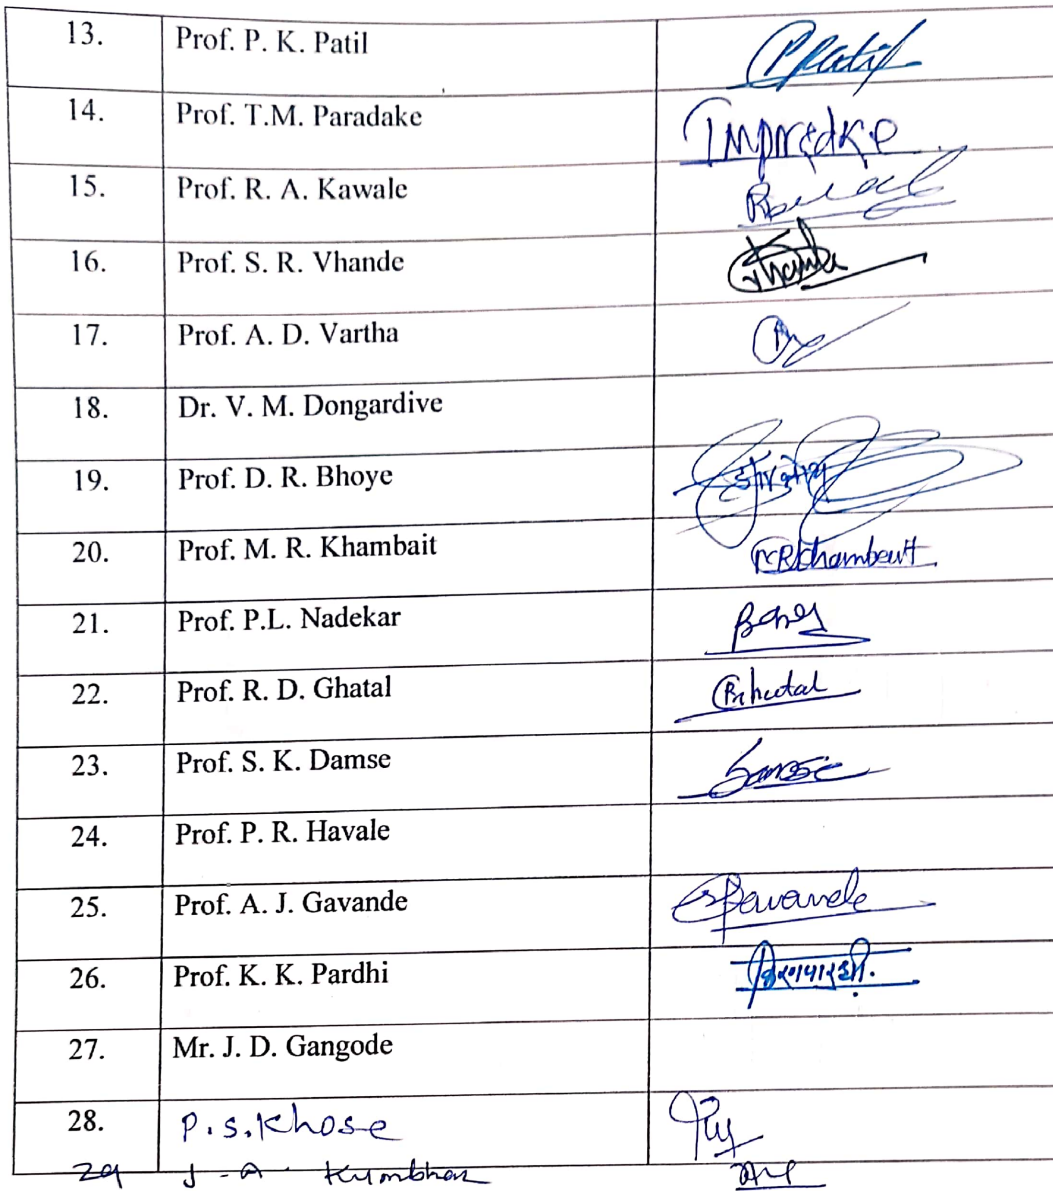 13. Prof. P. K. Patil PPatil
14. Prof. T.M. Paradake
15. Prof. R. A. Kawale
16. Prof. S. R. Vhande
17. Prof. A. D. Vartha
18. Dr. V. M. Dongardive
19. Prof. D. R. Bhoye
20. Prof. M. R. Khambait MRKhambait
21. Prof. P.L. Nadekar
22. Prof. R. D. Ghatal
23. Prof. S. K. Damse Damse
24. Prof. P. R. Havale
25. Prof. A. J. Gavande
26. Prof. K. K. Pardhi
27. Mr. J. D. Gangode
28. P. S. Khose
29 J. A. Kumbhar